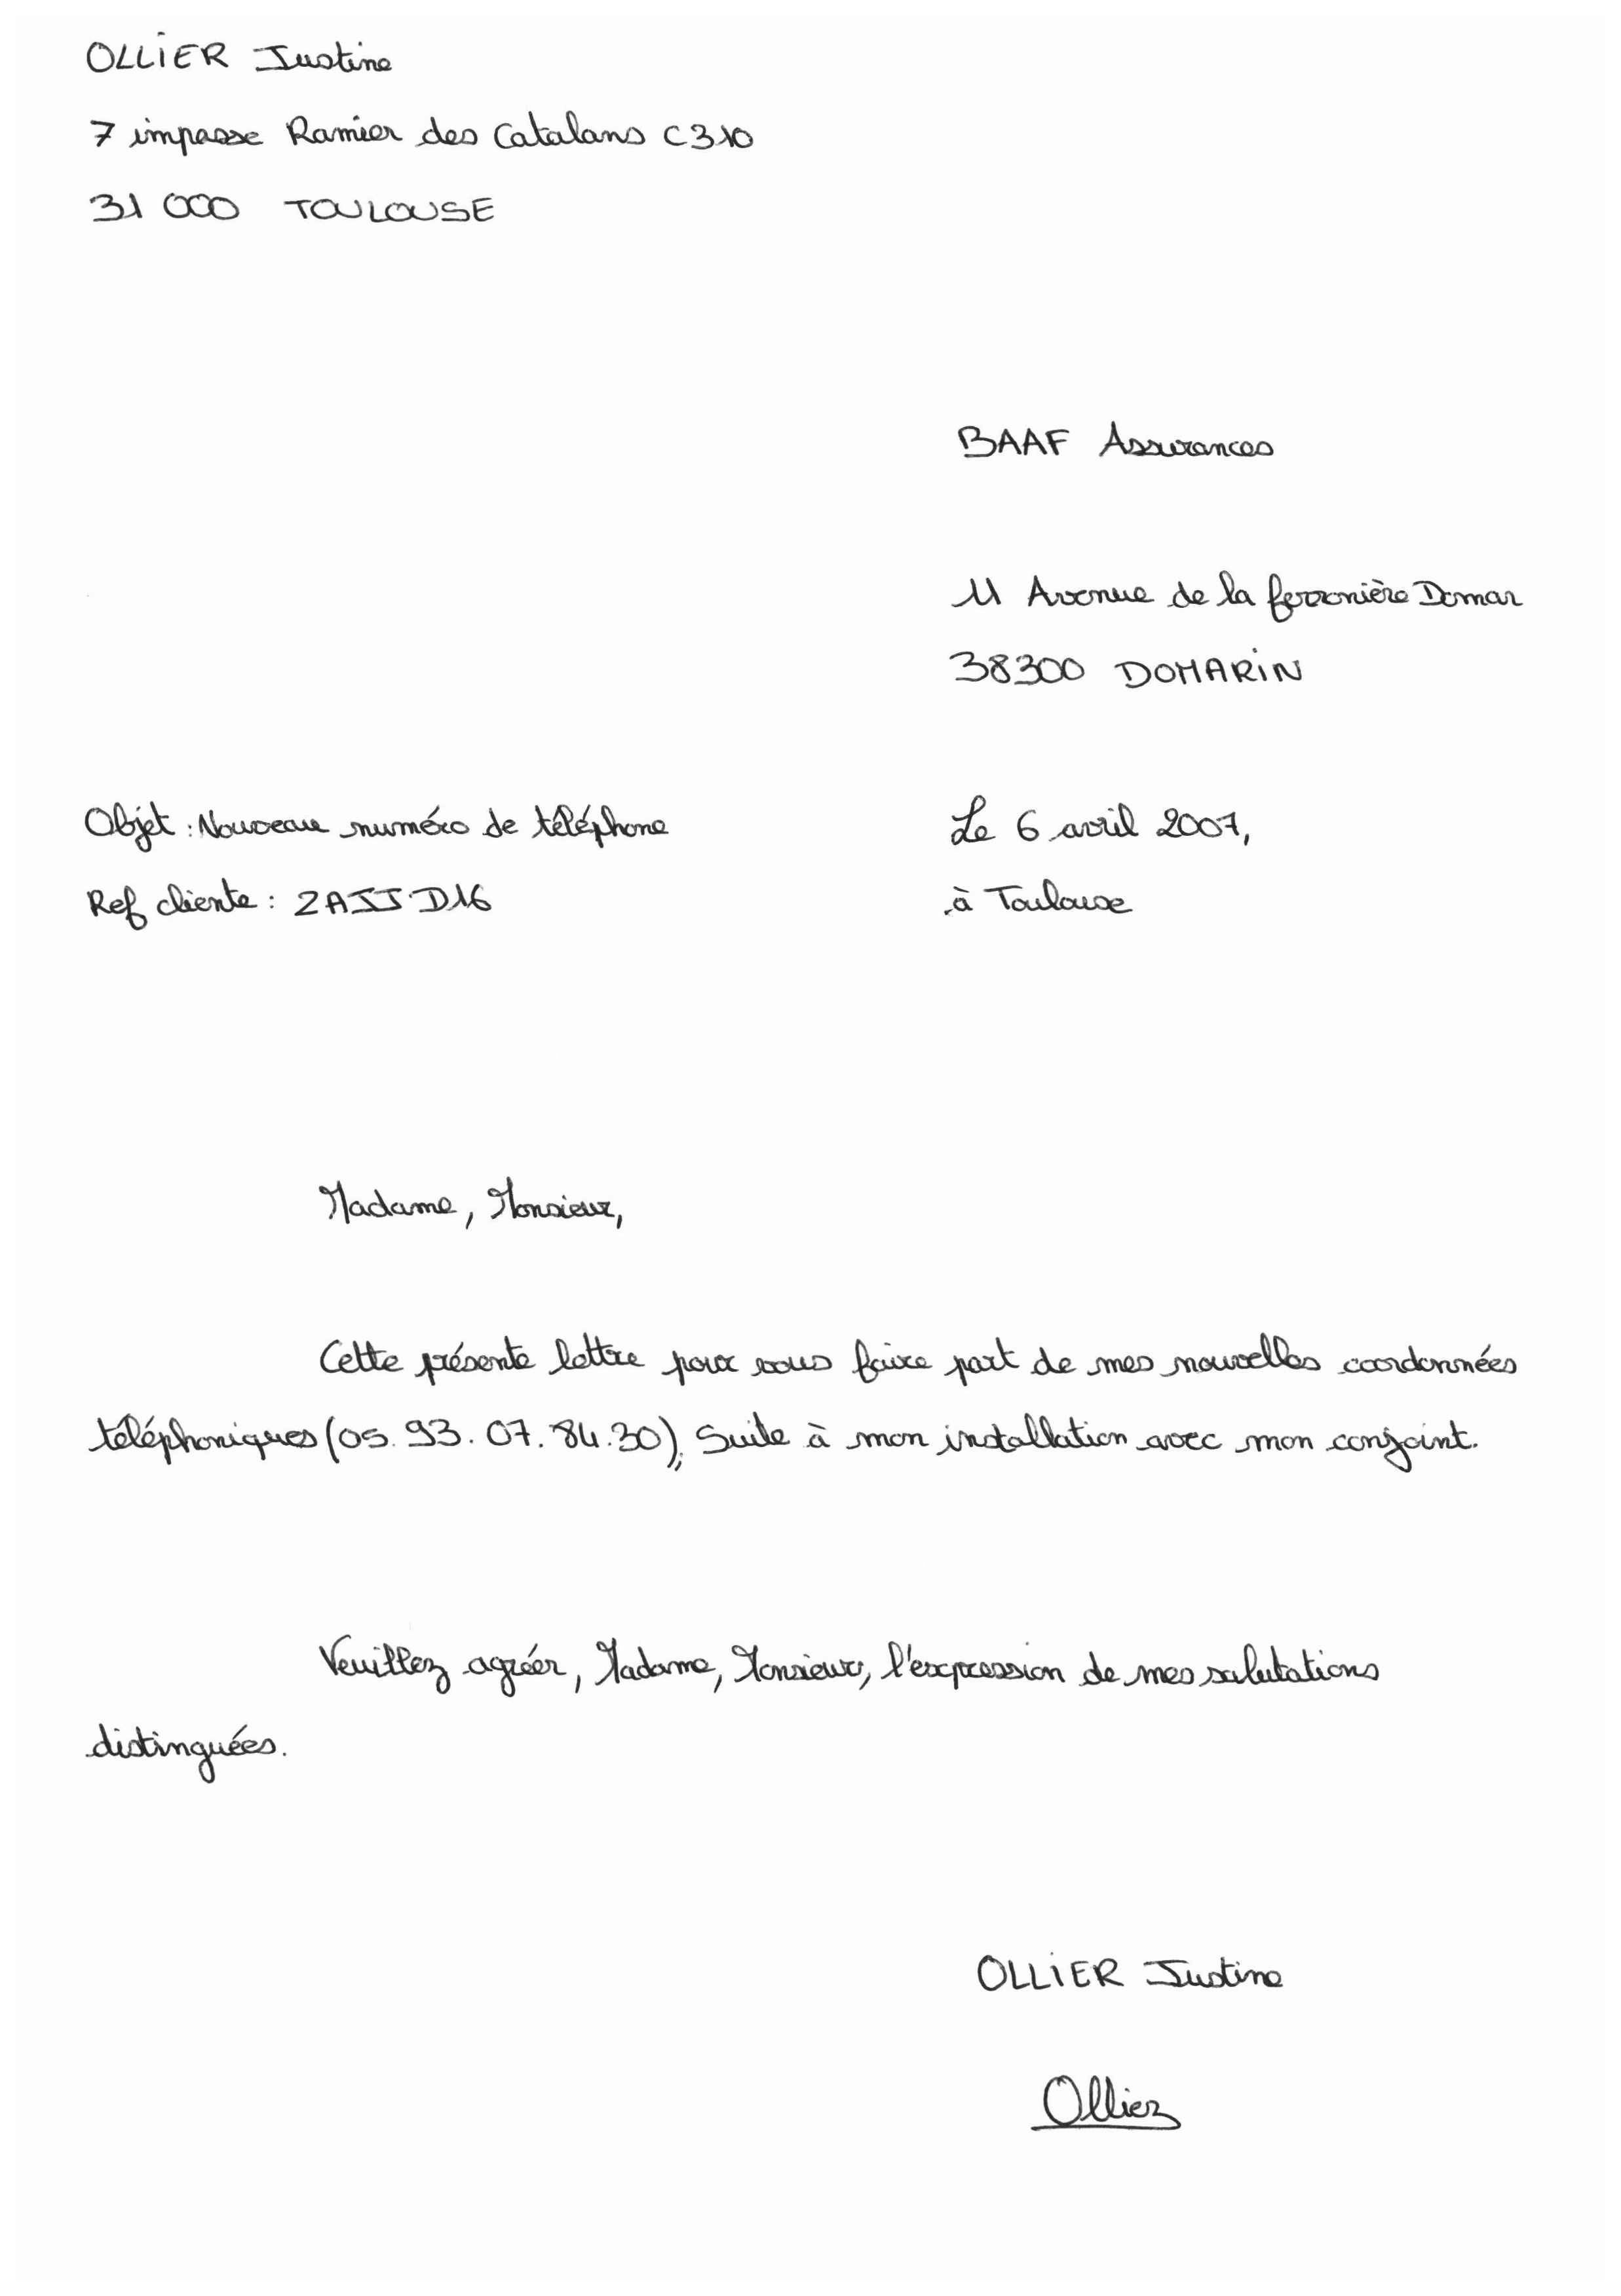 OLLIER Justine
7 impasse Ramier des Catalans C310
31 000 TOULOUSE
BAAF Assurances
11 Avenue de la ferronière Domar
38300 DOMARIN
Objet : Nouveau numéro de téléphone
Le 6 avril 2007,
Ref cliente : ZAJJD16
à Toulouse
Madame, Monsieur,
Cette présente lettre pour vous faire part de mes nouvelles coordonnées
téléphoniques (05.93.07.84.30), Suite à mon installation avec mon conjoint.
Veuillez agréer, Madame, Monsieur, l'expression de mes salutations
distinguées.
OLLIER Justine
Ollier